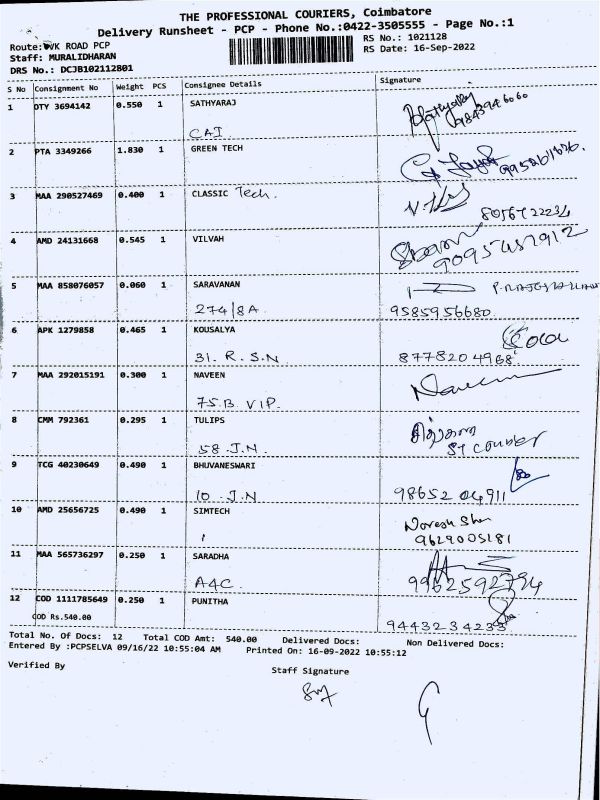 THE PROFESSIONAL COURIERS, Coimbatore
Delivery Runsheet - PCP - Phone No.:0422-3505555 - Page No.:1
Route: VK ROAD PCP
RS No.: 1021128
Staff: MURALIDHARAN
RS Date: 16-Sep-2022
DRS No.: DCJB102112801
S No Consignment No Weight PCS Consignee Details Signature
1 DTY 3694142 0.550 1 SATHYARAJ
CAI
2 PTA 3349266 1.830 1 GREEN TECH
3 MAA 290527469 0.400 1 CLASSIC Tech.
4 AMD 24131668 0.545 1 VILVAH
9095457912
5 MAA 858076057 0.060 1 SARAVANAN
274/8A. 9585956680.
6 APK 1279858 0.465 1 KOUSALYA
31. R.S.N 8778204968.
7 MAA 292015191 0.300 1 NAVEEN Naveen
75.B VIP.
8 CMM 792361 0.295 1 TULIPS
58.J.N. ST Courier
9 TCG 40230649 0.490 1 BHUVANESWARI
10 J.N 9865204911
10 AMD 25656725 0.490 1 SIMTECH
9629005181
11 MAA 565736297 0.250 1 SARADHA
A4C. 9962592794
12 COD 1111785649 0.250 1 PUNITHA
COD Rs.540.00 9443234233
Total No. Of Docs: 12 Total COD Amt: 540.00 Delivered Docs: Non Delivered Docs:
Entered By :PCPSELVA 09/16/22 10:55:04 AM Printed On: 16-09-2022 10:55:12
Verified By Staff Signature